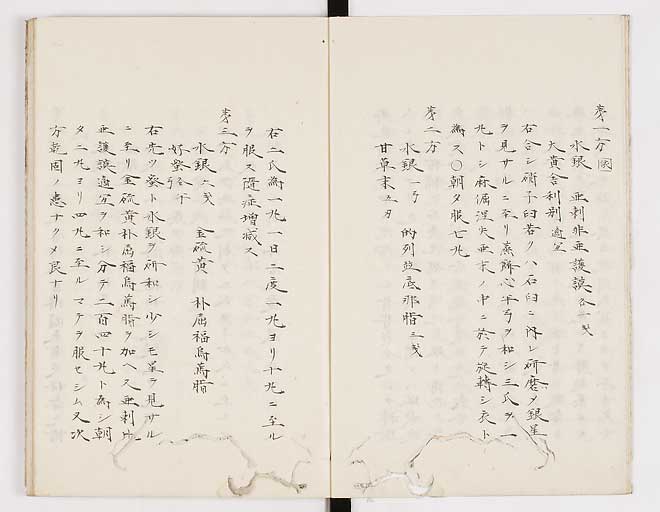 第一方
水銀 亜刺非亜護謨各一戔
大黄舎利別適宜
右合シ硝子臼若クハ石臼ニ内レ研磨メ銀星
ヲ見サルニ至リ 和シ三氏ヲ一
丸トシ 亜末ノ中ニ於テ旋轉シ衣ト
為ス〇朝夕服七丸
第二方
水銀一 的列並底那脂三戔
甘草末
右二氏為一丸一日二度一丸ヨリ十丸ニ至ル
ヲ服ス隨症増減ス
第三方
水銀六戔 金硫黄 朴屈福烏篤脂
好蜜各
右先ツ蜜ト水銀ヲ研和シ少シモ星ヲ見サル
ニ至リ金硫黄朴屈福烏篤脂ヲ加ヘ又亜刺比
亜護謨適宜ヲ和シ分テ二百四十丸ト為シ朝
夕二丸ヨリ四丸ニ至ルマテヲ服セシム又次
方乾固ノ患ナクメ良ナリ